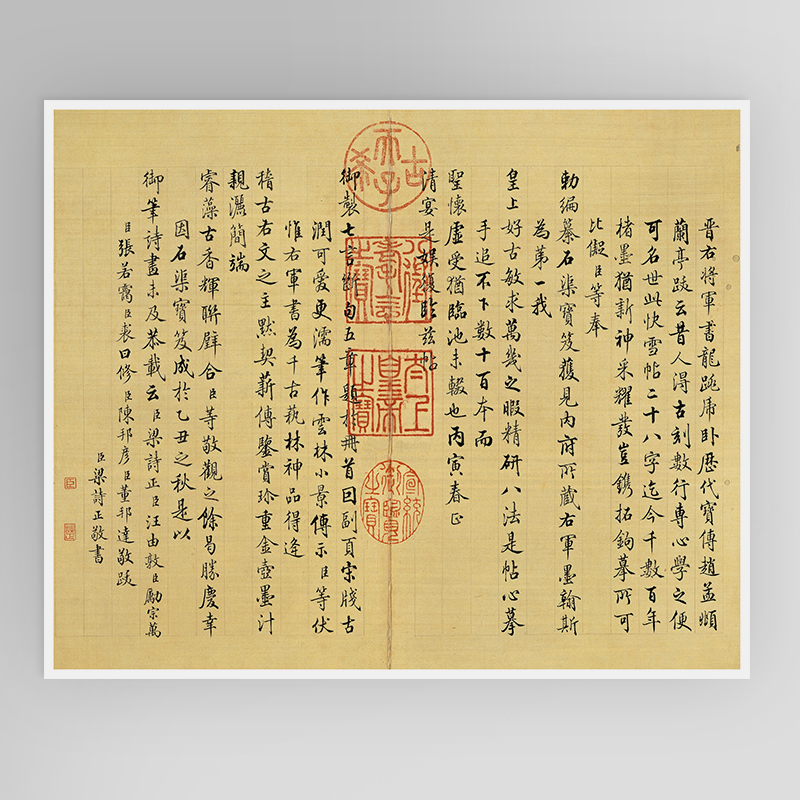 晉右將軍書龍跳虎卧歷代寶傳趙孟頫
蘭亭跋云昔人得古刻數行專心學之便
可名世此快雪帖二十八字迄今千數百年
楮墨猶新神采耀發豈鐫拓鉤摹所可
比儗臣等奉
勅編纂石渠寶笈獲見內府所藏右軍墨翰斯
為第一我
皇上好古敏求萬幾之暇精研八法是帖心摹
手追不下數十百本而
聖懷虛受猶臨池未輟也丙寅春正
清宴是娛復臨茲帖
御製七言斷句五章題於冊首回副頁宋牋古
潤可愛更濡筆作雲林小景傳示臣等伏
惟右軍書為千古蓺林神品得逢
稽古右文之主默契薪傳鑒賞珍重金壺墨汁
親灑簡端
睿藻古香輝聯璧合臣等敬觀之餘曷勝慶幸
因石渠寶笈成於乙丑之秋是以
御筆詩畫未及恭載云臣梁詩正臣汪由敦臣勵宗萬
臣張若靄臣裘曰修臣陳邦彥臣董邦達敬跋
臣梁詩正敬書
古希天子
八徵耄念之寶
太上皇帝之寶
宣統御覽之寶